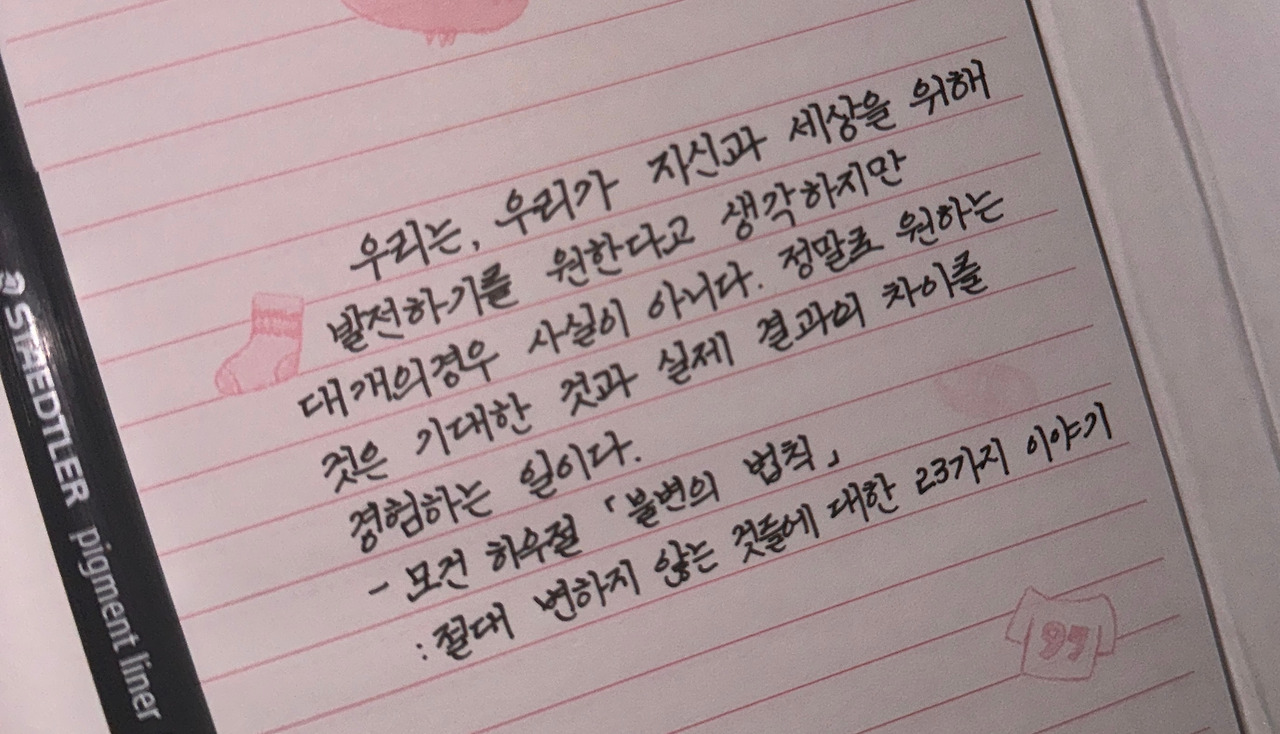 우리는, 우리가 자신과 세상을 위해
발전하기를 원한다고 생각하지만
대개의경우 사실이 아니다. 정말로 원하는
것은 기대한 것과 실제 결과의 차이를
경험하는 일이다.
- 모건 하우절 「불변의 법칙」
: 절대 변하지 않는 것들에 대한 23가지 이야기
STAEDTLER pigment liner
97